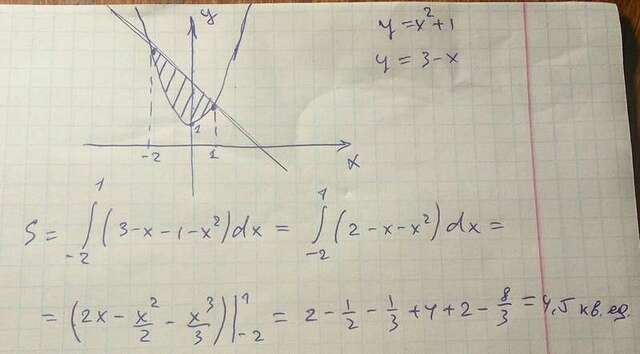 y
y = x² + 1
y = 3 - x
1
-2
1
x
S = ∫₋₂¹ (3 - x - 1 - x²) dx = ∫₋₂¹ (2 - x - x²) dx =
= (2x - x²/2 - x³/3) |₋₂¹ = 2 - 1/2 - 1/3 + 4 + 2 - 8/3 = 4,5 кв. ед.